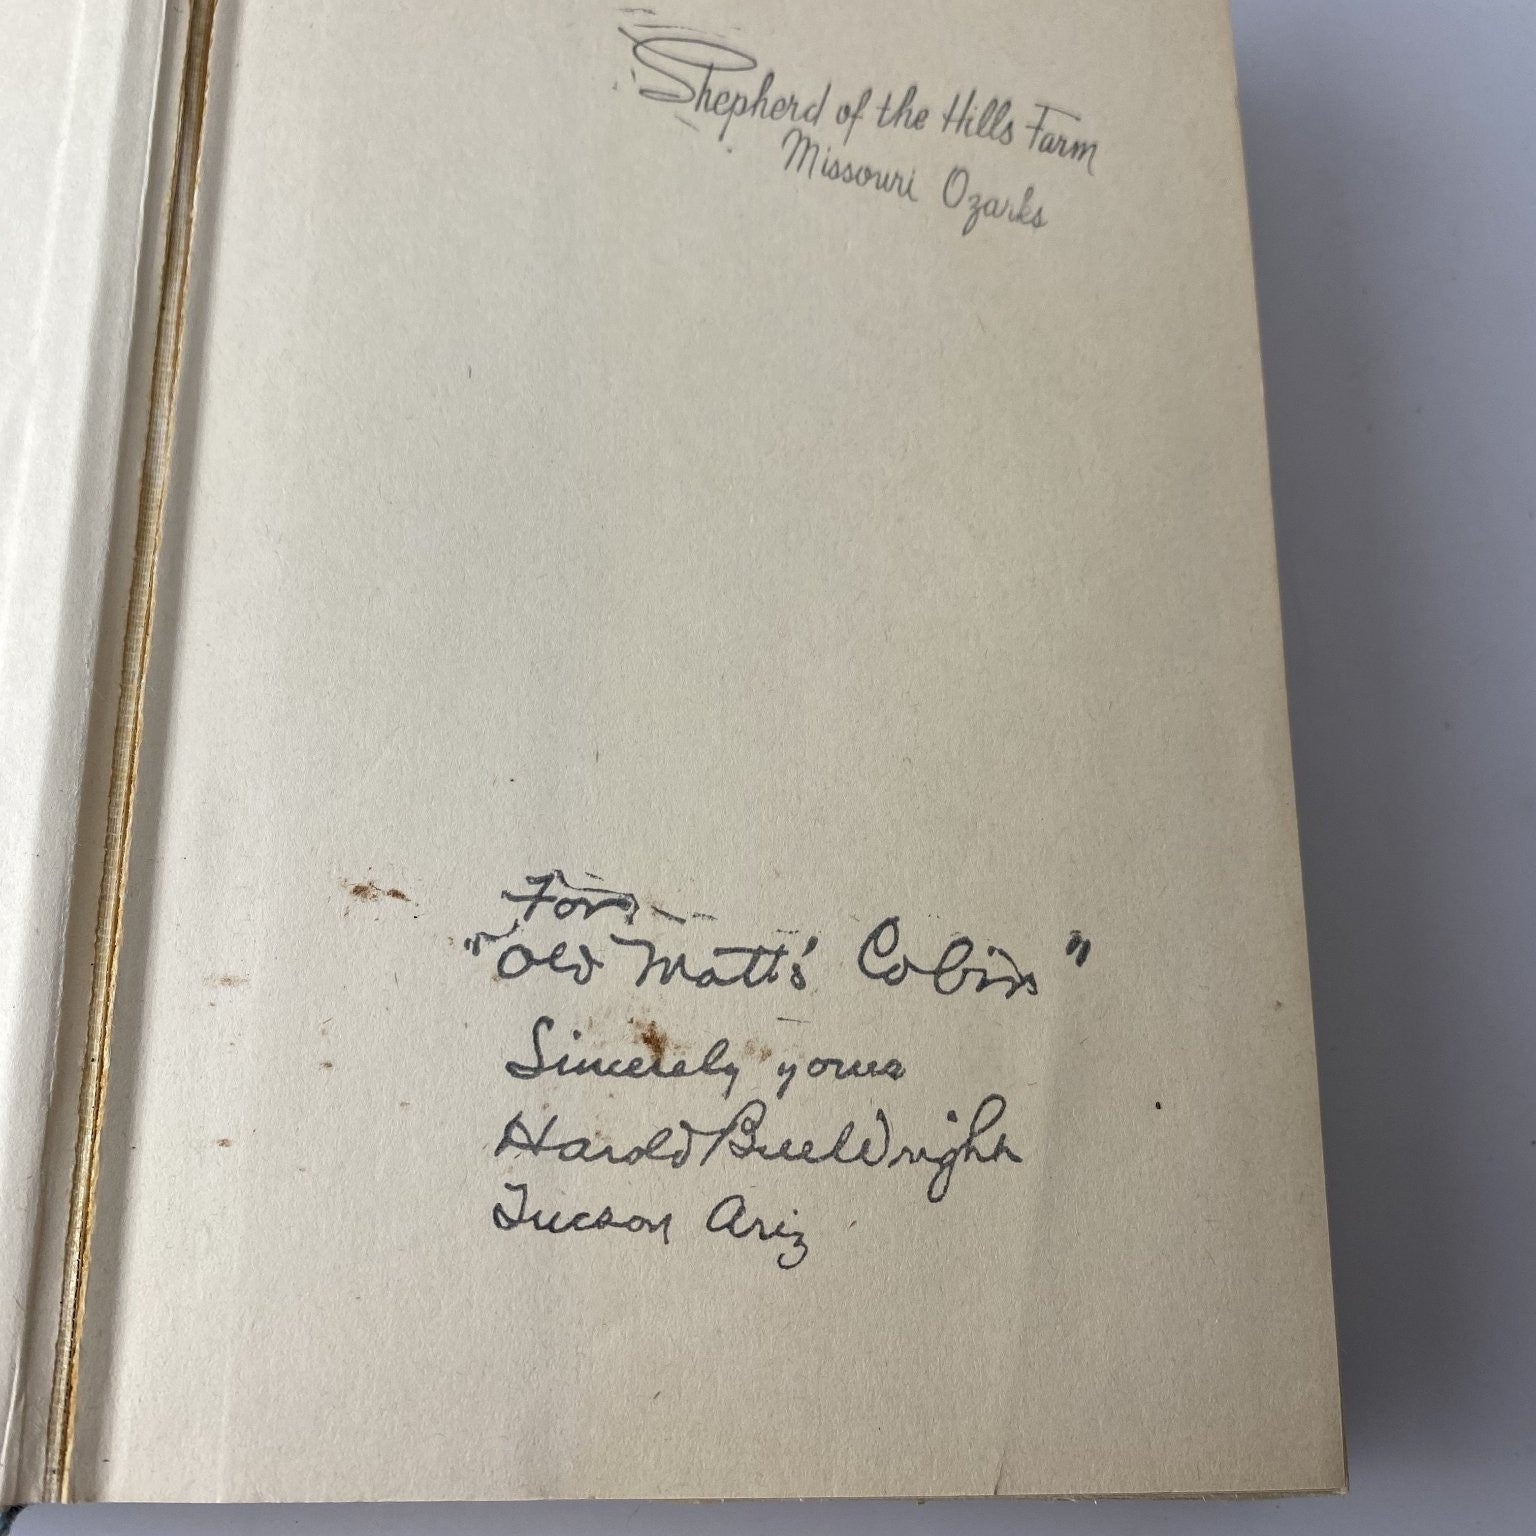 Shepherd of the Hills Farm
Missouri Ozarks
For
"Old Matt's Cabin"
Sincerely yours
Harold Bell Wright
Tucson Ariz